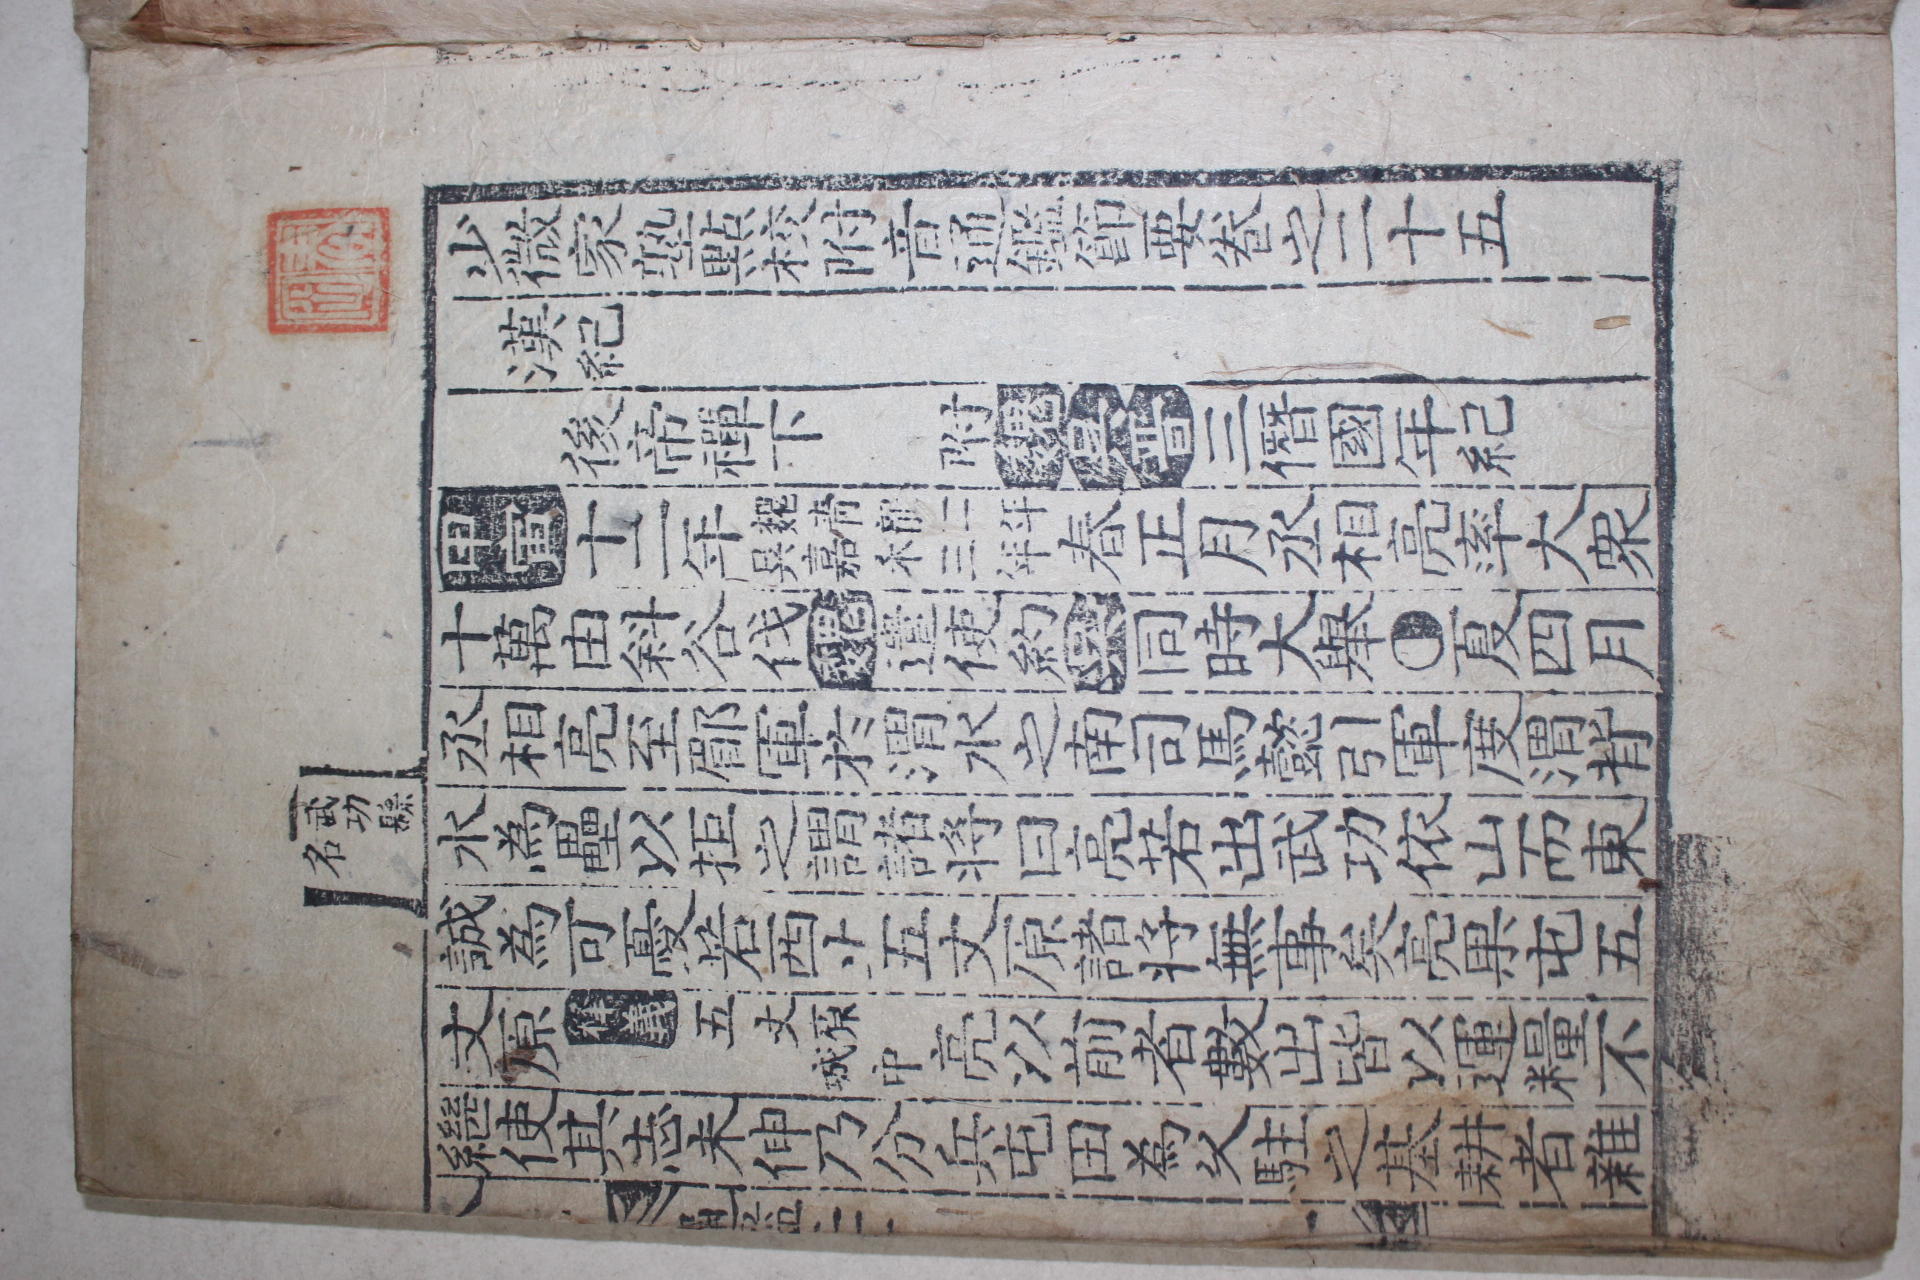 少微家塾點校附音通鑑節要卷之二十五
漢紀
後帝禪下 附魏吳晉三僭國年紀
甲寅十二年魏青龍二年吳嘉禾三年春正月丞相亮率大衆
十萬由斜谷伐魏遣使約吳同時大舉夏四月
丞相亮至郿軍於渭水之南司馬懿引軍度渭背
武功縣名
水為壘以拒之謂諸將曰亮若出武功依山而東
誠為可憂若西上五丈原諸將無事矣亮果屯五
丈原釋義五丈原城中亮以前者數出皆以運糧不
繼使其志未伸乃分兵屯田為久駐之基耕者雜